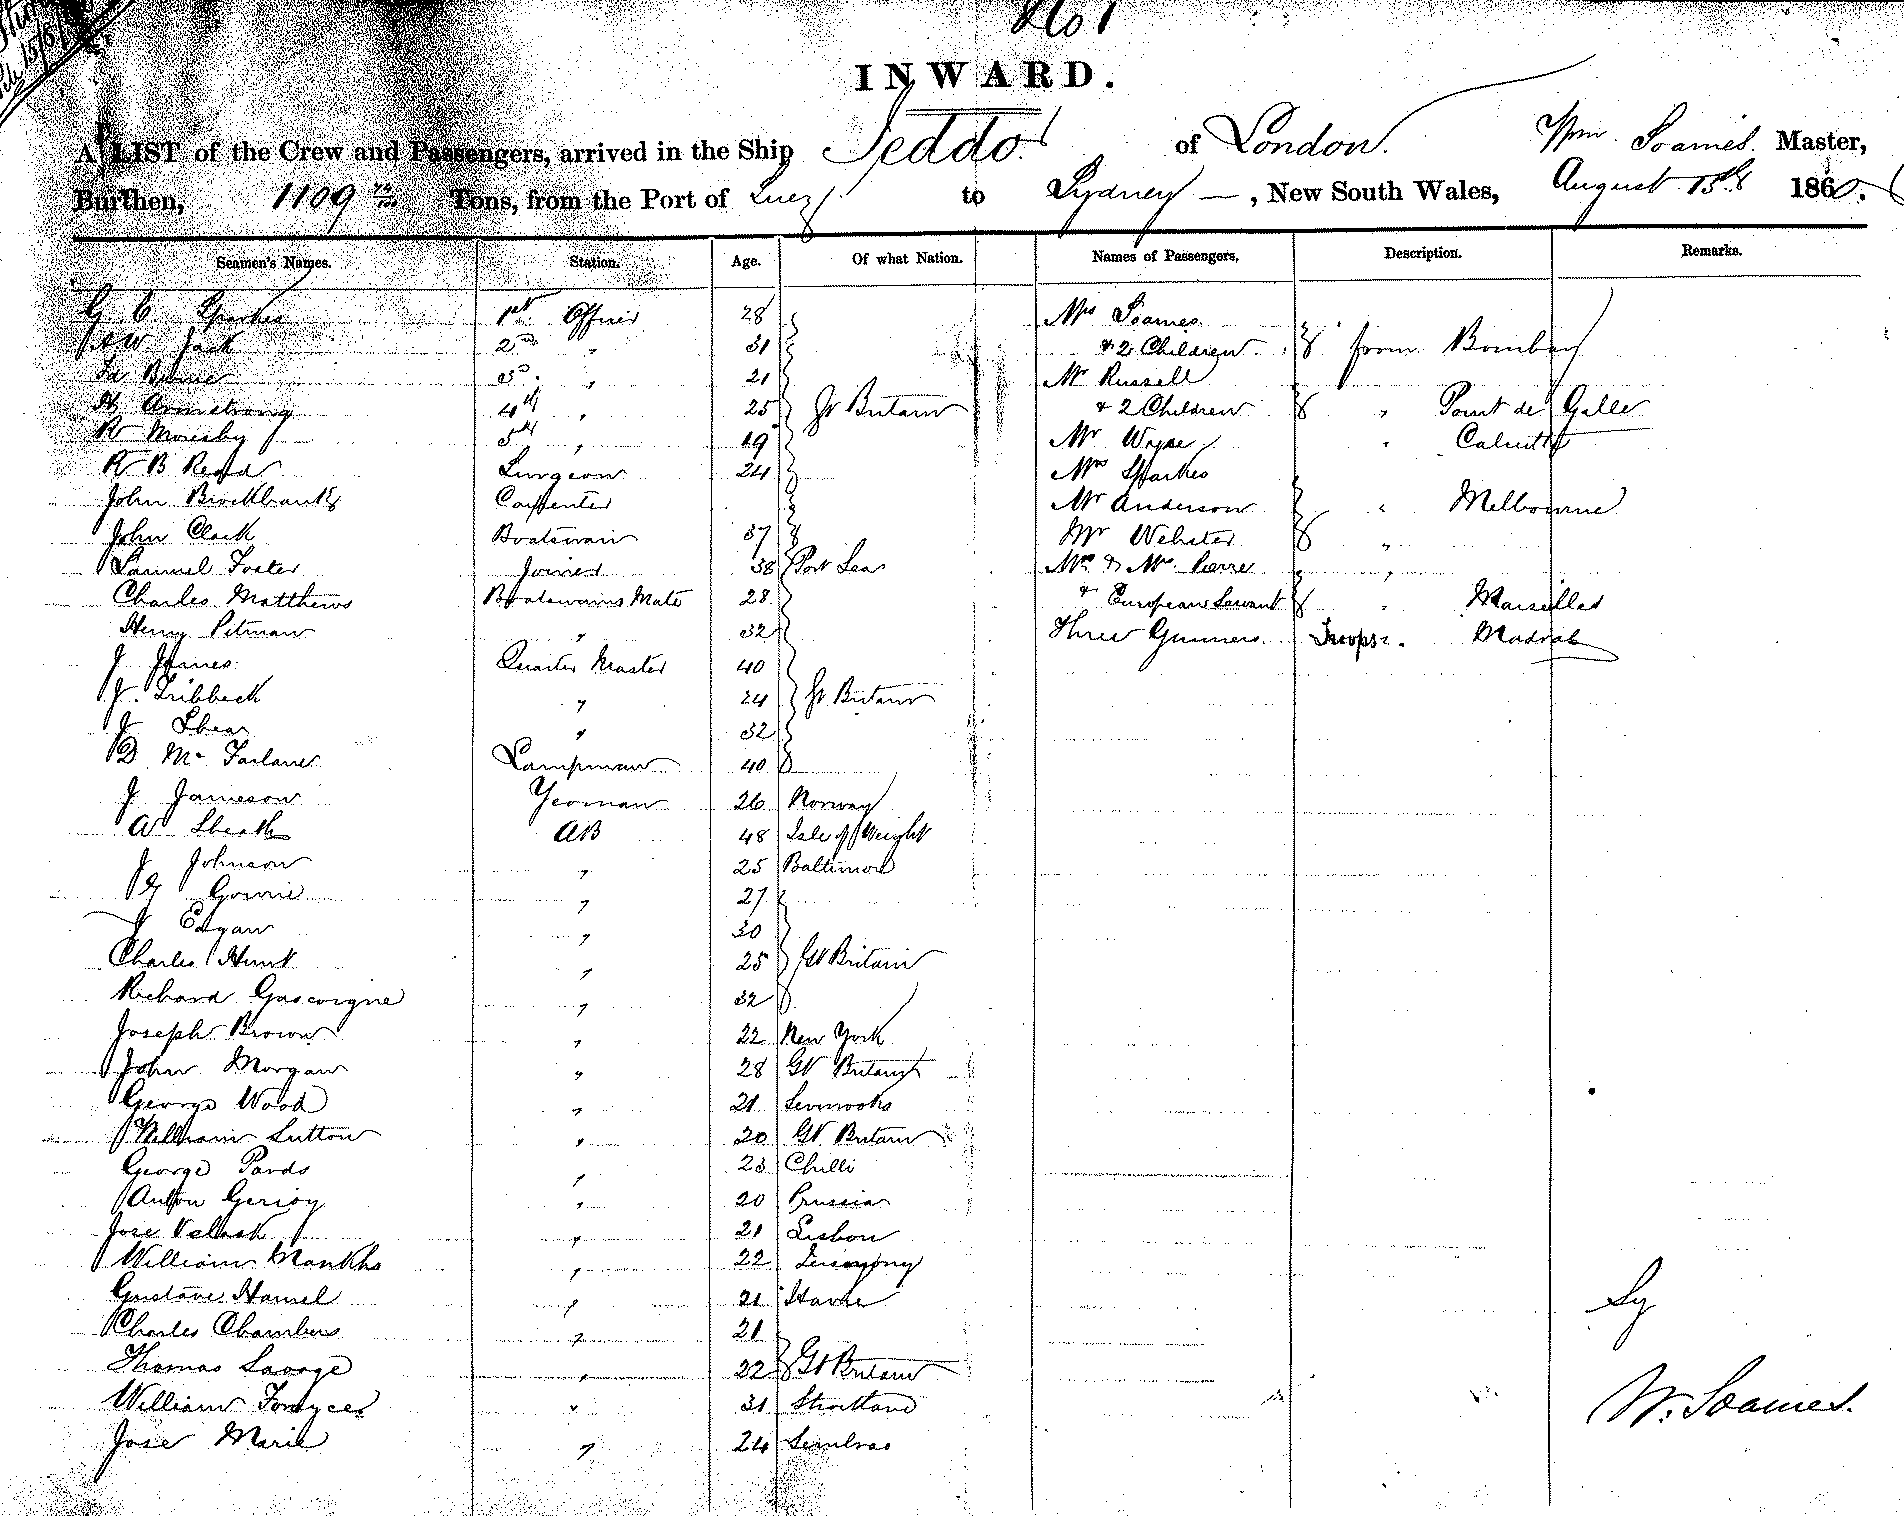 861
INWARD.
A LIST of the Crew and Passengers, arrived in the Ship Jeddo of London. Wm Soames. Master,
Burthen, 1109 Tons, from the Port of Suez to Sydney —, New South Wales, August 15th 1860.
Seamen's Names. Station. Age. Of what Nation. Names of Passengers, Description. Remarks.
G C Sparkes 1st Officer 28 Mrs Soames
Jack 2nd " 31 & 2 Children from Bombay
3d. " 21 Mr Russell
Armstrong 4th " 25 Gt Britain & 2 Children " Point de Galle
R Moresby 5th " 19 Mr " Calcutta
R B Read Surgeon 24 Mrs Sparkes
John Brockbank Carpenter Mr Anderson " Melbourne
John Clark Boatswain 37 Mr Webster "
Samuel Foster Joiner 38 Port Sea Mr & Mrs Pierre "
Charles Matthews Boatswains Mate 28 & European Servant " Marseilles
Henry Pitman " 32 Three Gunners Troops. Madras
J James Quarter Master 40
J. Tribbeck " 24 Gt Britain
J Shea " 32
D Mc Farlane Lampman 40
J Jameson Yeoman 26 Norway
A Sheath AB 48 Isle of Weight
J Johnson " 25 Baltimore
G Gowrie " 27
J Edgar " 30
Charles Hunt " 25 Gt Britain
Richard Gascoigne " 32
Joseph Brown " 22 New York
John Morgan " 28 Gt Britain
George Wood " 21
William Sutton " 20 Gt Britain
George Pards " 23 Chilli
Anton " 20 Prussia
Jose " 21 Lisbon
William " 22
Gustave Hamel " 21 Havre
Charles Chambers " 21
Thomas " 22 Gt Britain
William " 31
Jose Marie " 24
W. Soames.